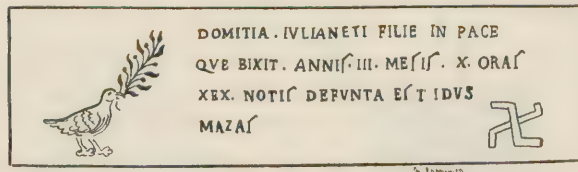 DOMITIA . IVLIANETI FILIE IN PACE
QVE BIXIT . ANNIſ . III . MEſIſ . X . ORAſ
XEX . NOTIſ DEFVNTA EſT IDVS
MAZAſ